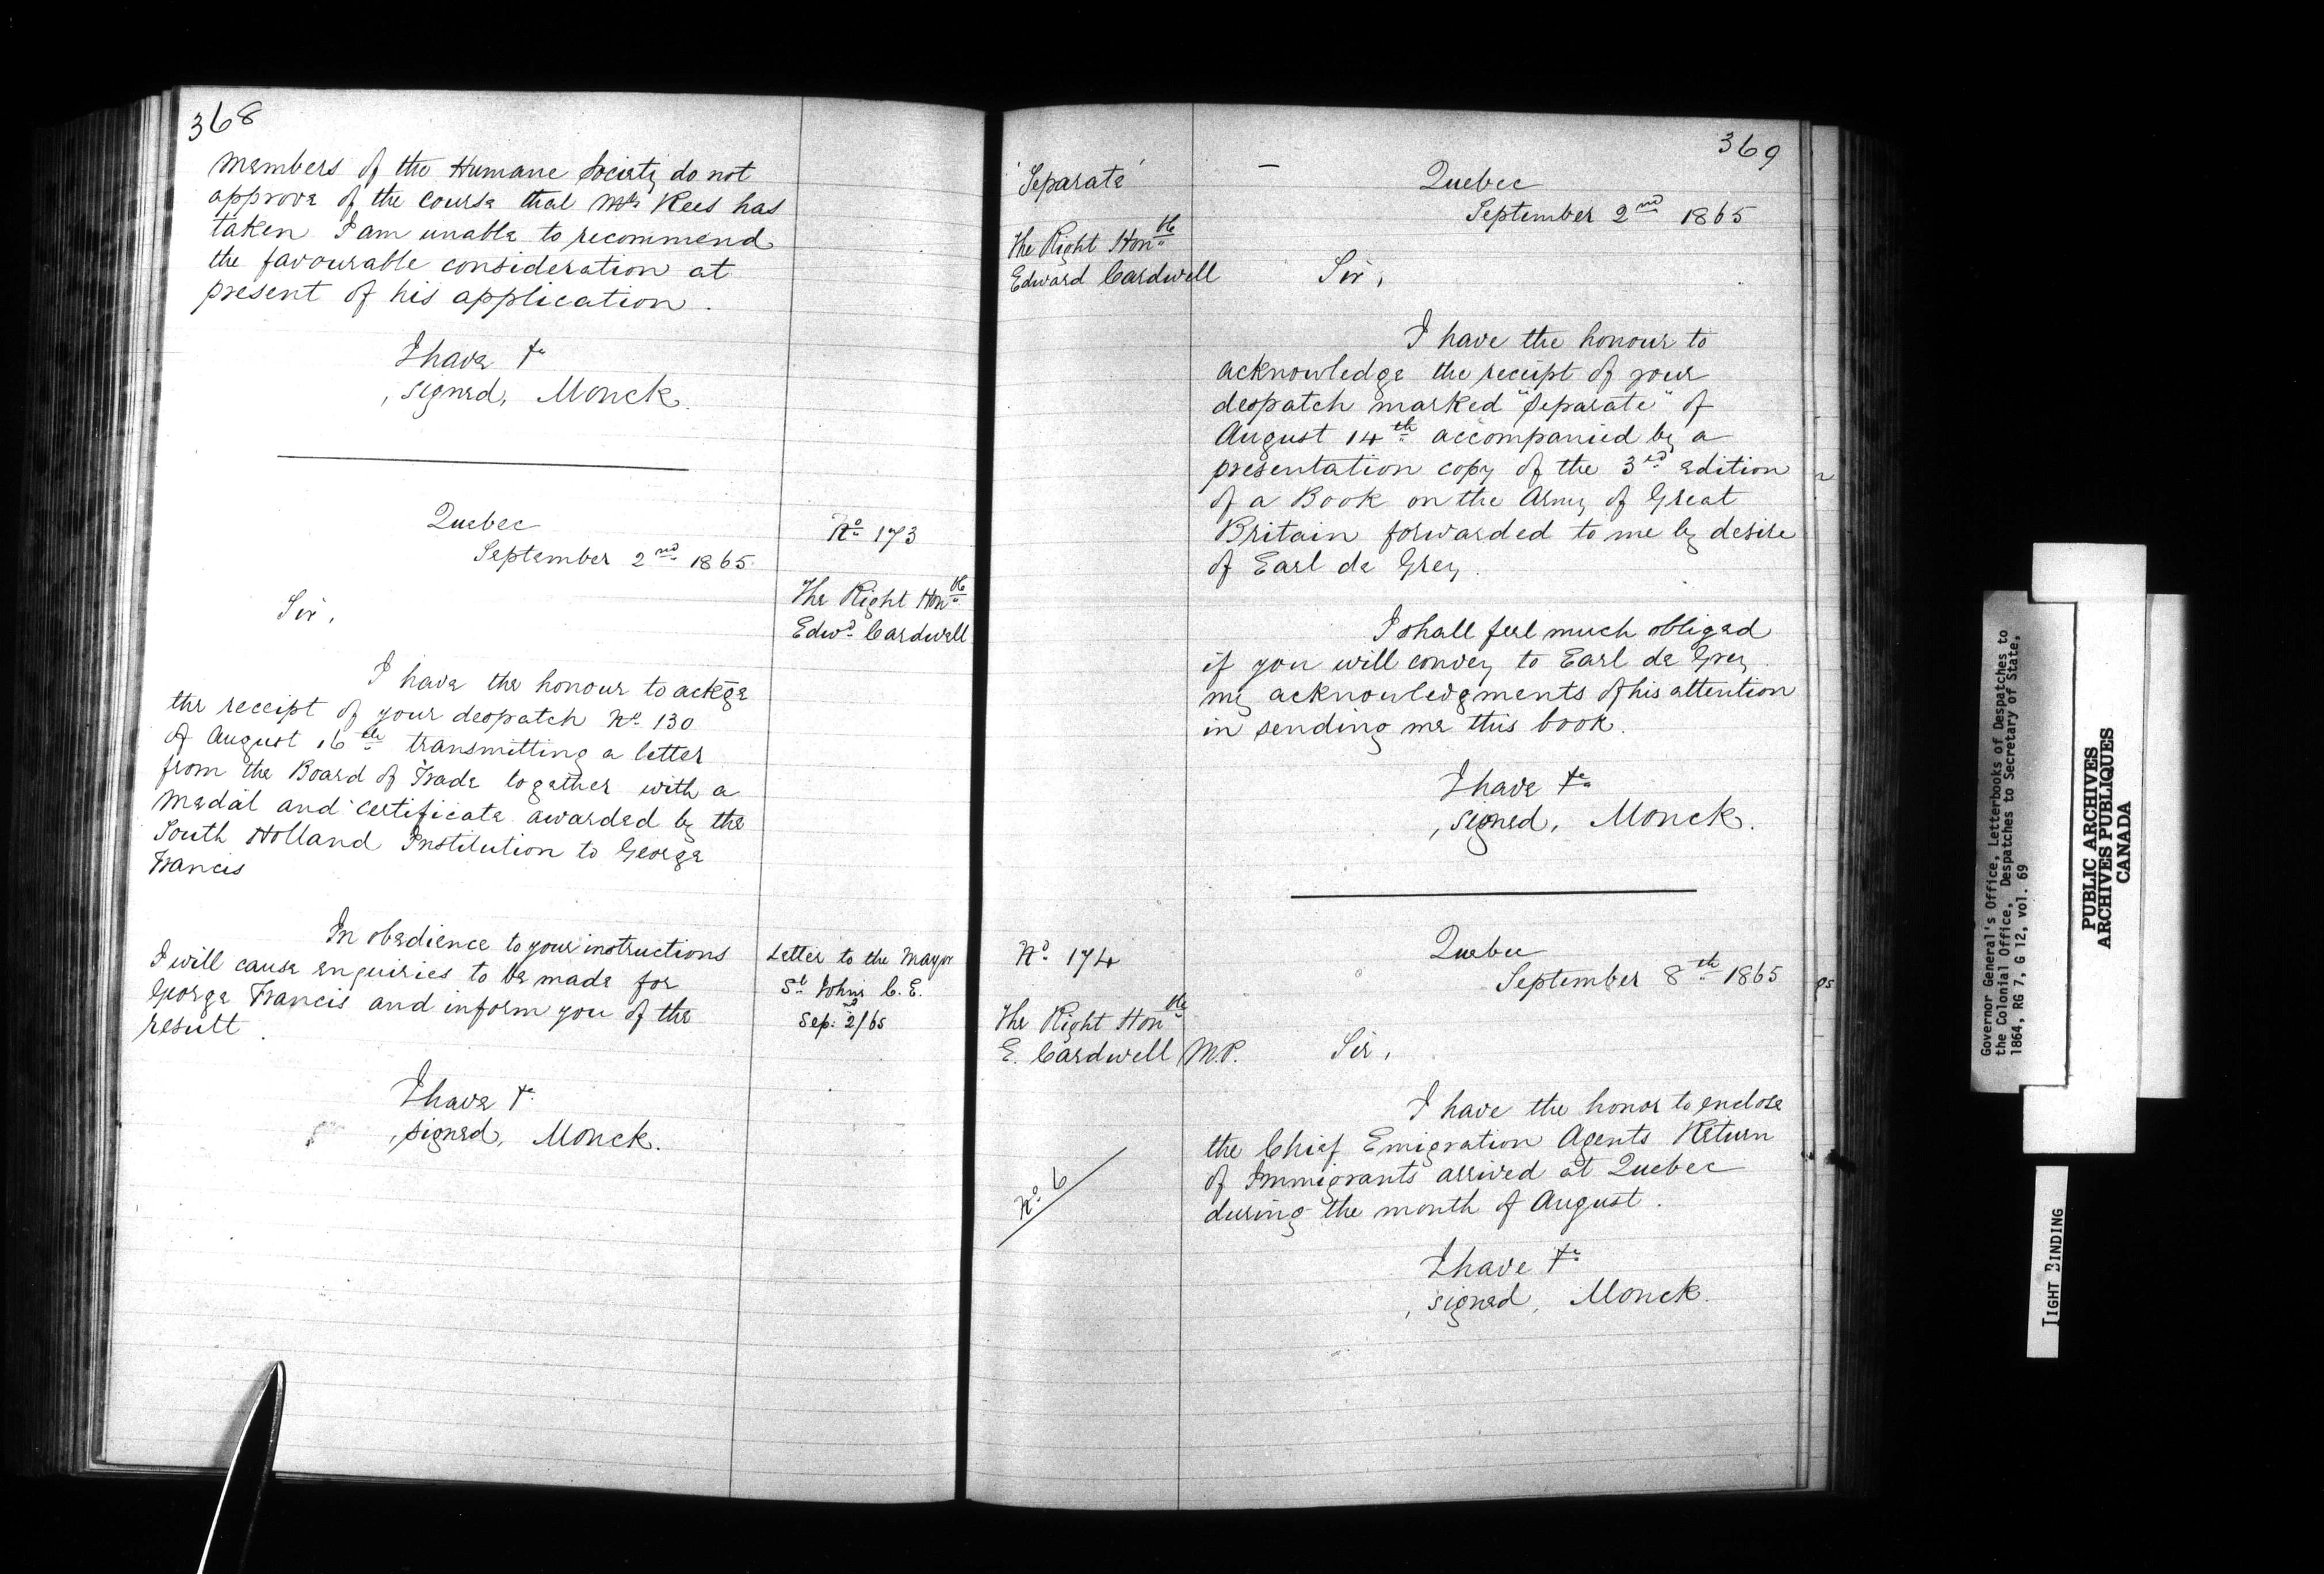 368
Members of the Humane Society do not
approve of the course that Mr Rees has
taken I am unable to recommend
the favourable consideration at
present of his application.
I have &c
signed, Monck.
Quebec
September 2nd 1865.
No 173
The Right Honble
Edwd Cardwell
Sir,
I have the honour to ackge
the receipt of your despatch No 130
of August 16th transmitting a letter
from the Board of Trade together with a
Medal and Certificate awarded by the
South Holland Institution to George
Francis
In obedience to your instructions
I will cause enquiries to be made for
George Francis and inform you of the
result.
Letter to the Mayor
St Johns C. E.
Sep: 2nd/65
I have &c
signed, Monck.
369
'Separate'
Quebec
September 2nd 1865
The Right Honble
Edward Cardwell
Sir,
I have the honour to
acknowledge the receipt of your
despatch marked "Separate" of
August 14th accompanied by a
presentation copy of the 3rd edition
of a Book on the Army of Great
Britain forwarded to me by desire
of Earl de Grey.
I shall feel much obliged
if you will convey to Earl de Grey
my acknowledgments of his attention
in sending me this book.
I have &c
signed, Monck.
No 174
Quebec
September 8th 1865
The Right Honble
E. Cardwell M.P.
Sir,
I have the honor to enclose
the Chief Emigration Agents Return
of Immigrants arrived at Quebec
during the month of August.
No 6
I have &c
signed, Monck.
Governor General's Office, Letterbooks of Despatches to
the Colonial Office, Despatches to Secretary of State,
1864, RG 7, G 12, vol. 69
PUBLIC ARCHIVES
ARCHIVES PUBLIQUES
CANADA
TIGHT BINDING